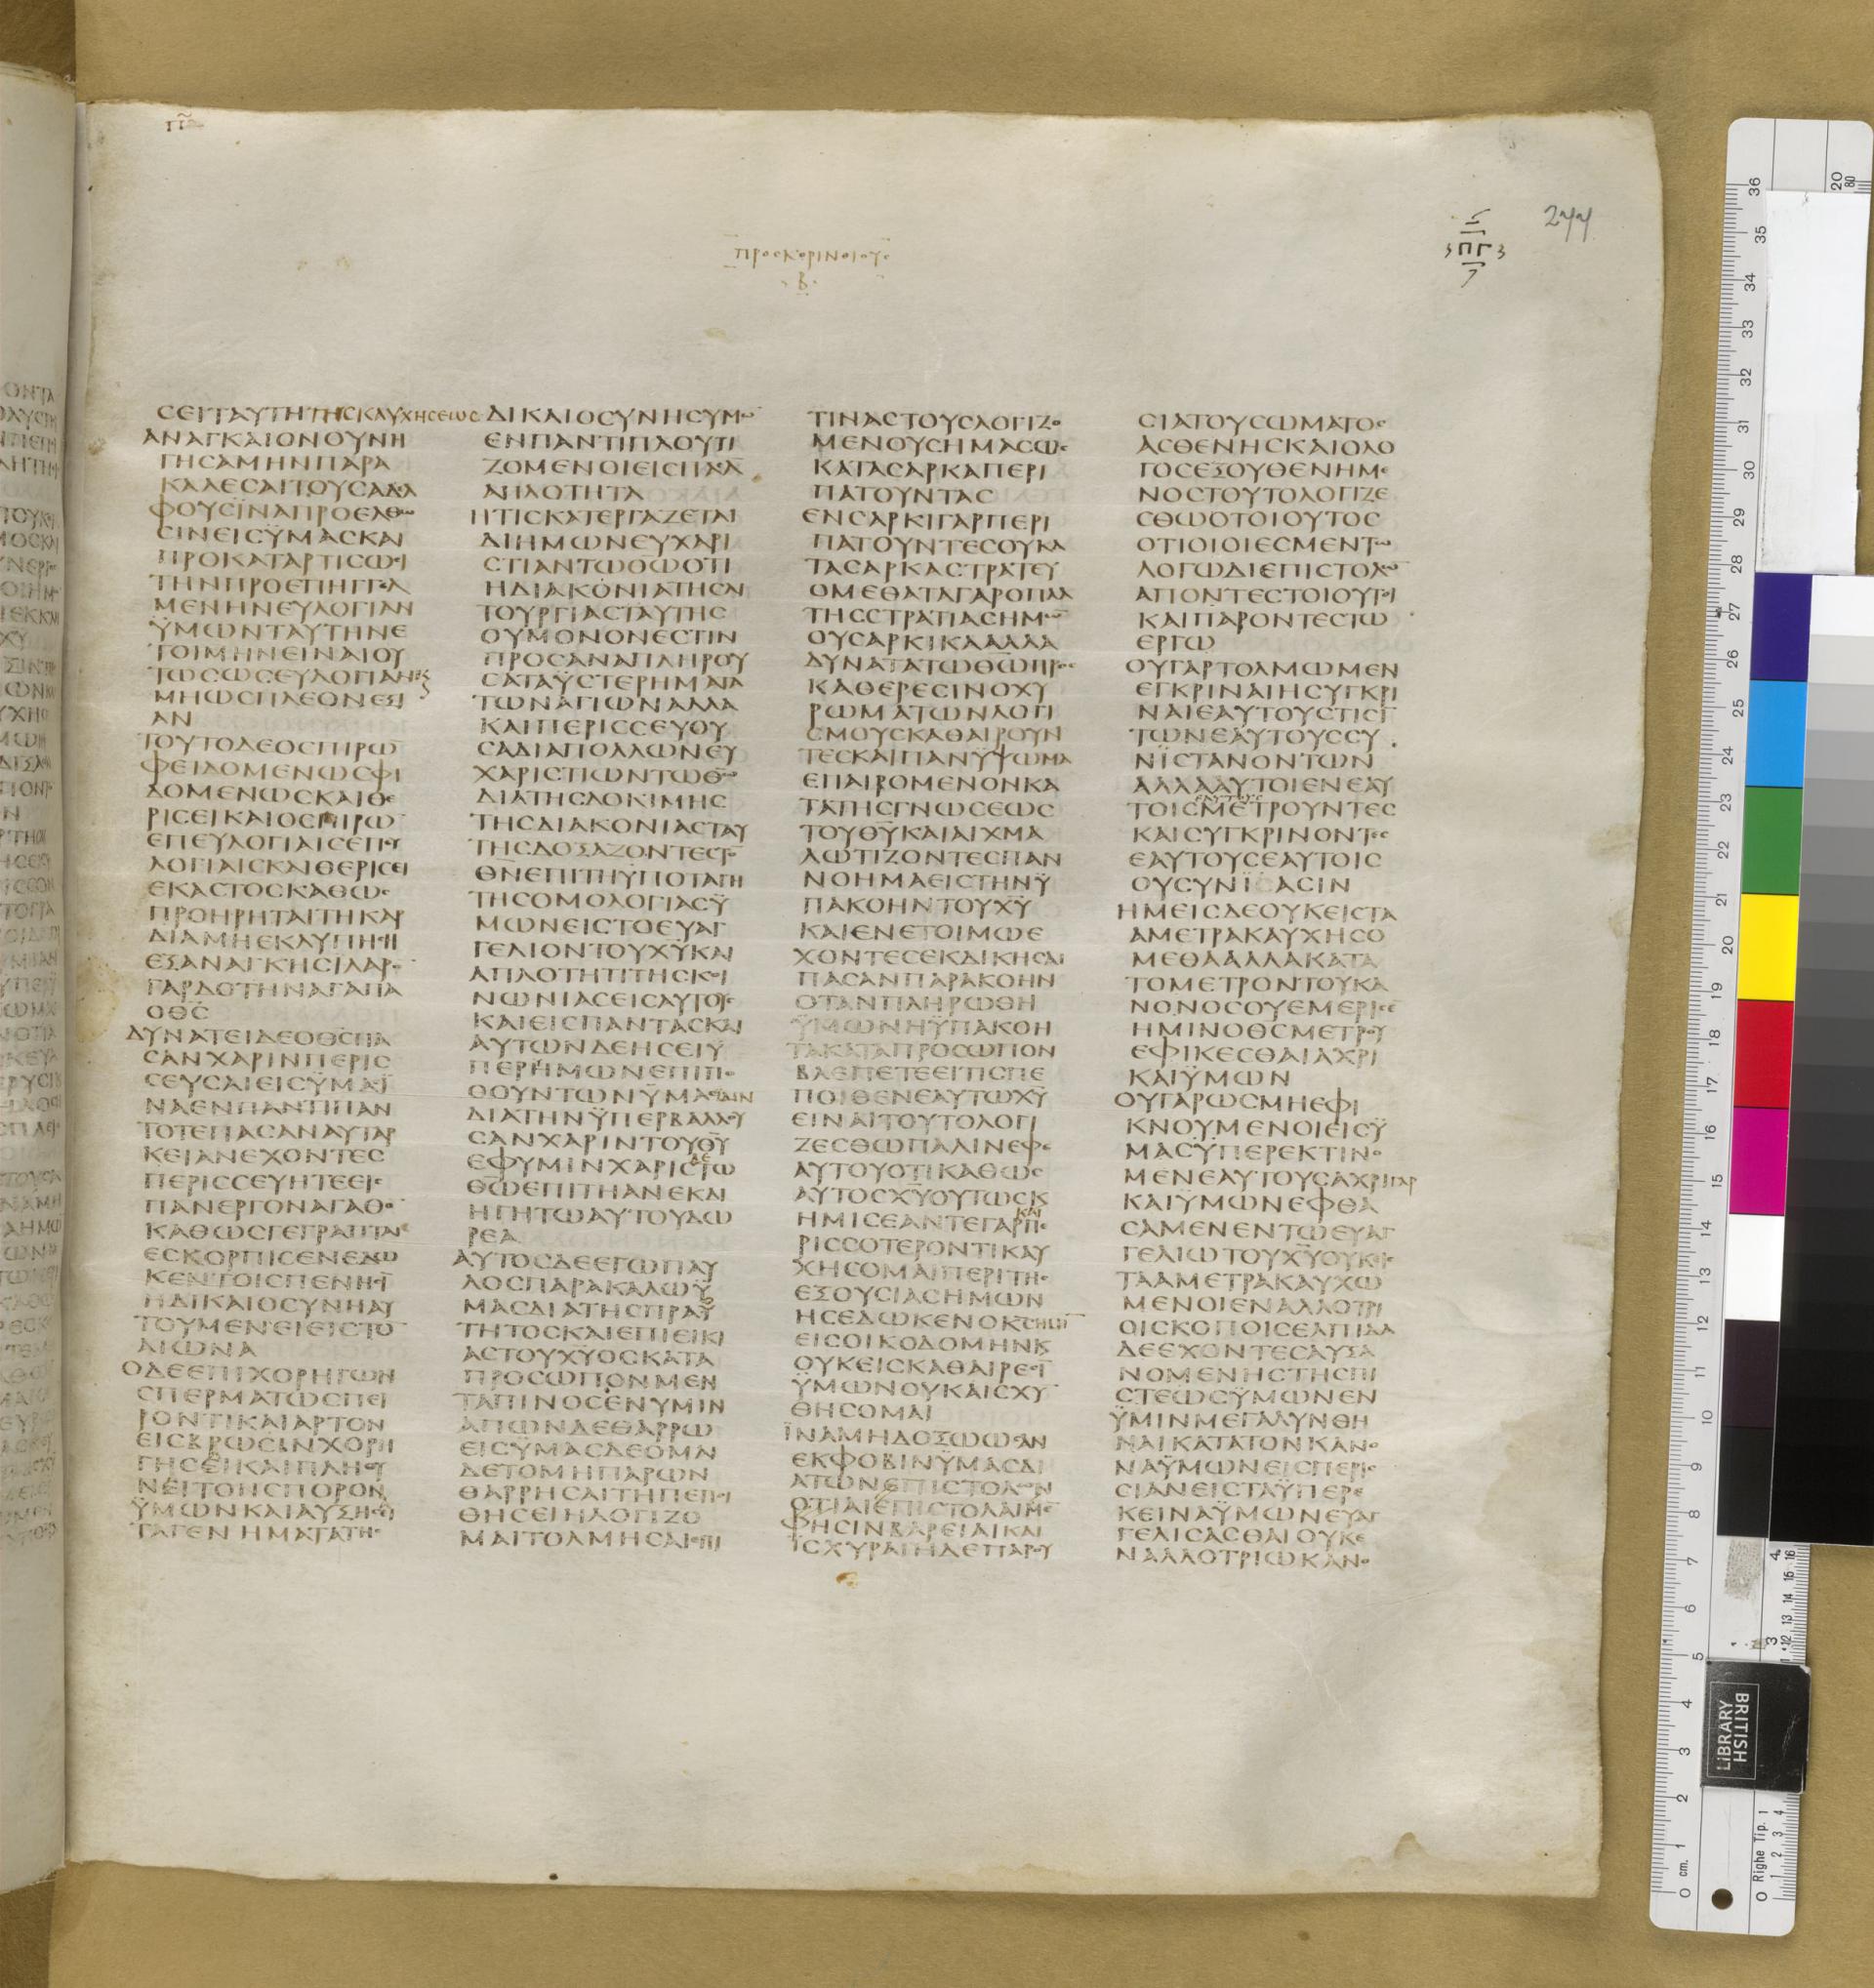 ΠΡΟϹΚΟΡΙΝΘΙΟΥϹ
Β
244
ϹΕΙΤΑΥΤΗΤΗϹΚΑΥΧΗϹΕΩϹ
ΑΝΑΓΚΑΙΟΝΟΥΝΗ
ΓΗϹΑΜΗΝΠΑΡΑ
ΚΑΛΕϹΑΙΤΟΥϹΑΔΕΛ
ΦΟΥϹΪΝΑΠΡΟΕΛΘΩ
ϹΙΝΕΙϹΫΜΑϹΚΑΙ
ΠΡΟΚΑΤΑΡΤΙϹΩϹΙ
ΤΗΝΠΡΟΕΠΗΓΓΕΛ
ΜΕΝΗΝΕΥΛΟΓΙΑΝ
ΫΜΩΝΤΑΥΤΗΝΕ
ΤΟΙΜΗΝΕΙΝΑΙΟΥ
ΤΩϹΩϹΕΥΛΟΓΙΑΝ
ΜΗΩϹΠΛΕΟΝΕΞΙ
ΑΝ
ΤΟΥΤΟΔΕΟϹΠΙΡΩ
ΦΕΙΔΟΜΕΝΩϹΦΙ
ΔΟΜΕΝΩϹΚΑΙΘΕ
ΡΙϹΕΙΚΑΙΟϹΠΙΡΩ
ΕΠΕΥΛΟΓΙΑΙϹΕΠΕΥ
ΛΟΓΙΑΙϹΚΑΙΘΕΡΙϹΕΙ
ΕΚΑϹΤΟϹΚΑΘΩϹ
ΠΡΟΗΡΗΤΑΙΤΗΚΑΡ
ΔΙΑΜΗΕΚΛΥΠΗϹΗ
ΕΞΑΝΑΓΚΗϹΙΛΑΡΟ
ΓΑΡΔΟΤΗΝΑΓΑΠΑ
ΟΘϹ
ΔΥΝΑΤΕΙΔΕΟΘϹΠΑ
ϹΑΝΧΑΡΙΝΠΕΡΙϹ
ϹΕΥϹΑΙΕΙϹΫΜΑϹΪ
ΝΑΕΝΠΑΝΤΙΠΑΝ
ΤΟΤΕΠΑϹΑΝΑΥΤΑΡ
ΚΕΙΑΝΕΧΟΝΤΕϹ
ΠΕΡΙϹϹΕΥΗΤΕΕΙϹ
ΠΑΝΕΡΓΟΝΑΓΑΘΟ
ΚΑΘΩϹΓΕΓΡΑΠΤΑΙ
ΕϹΚΟΡΠΙϹΕΝΕΔΩ
ΚΕΝΤΟΙϹΠΕΝΗϹΙ
ΗΔΙΚΑΙΟϹΥΝΗΑΥ
ΤΟΥΜΕΝΕΙΕΙϹΤΟ
ΑΙΩΝΑ
ΟΔΕΕΠΙΧΟΡΗΓΩΝ
ϹΠΕΡΜΑΤΩϹΠΕΙ
ΡΟΝΤΙΚΑΙΑΡΤΟΝ
ΕΙϹΒΡΩϹΙΝΧΟΡΗ
ΓΗϹΕΙΚΑΙΠΛΗΘΥ
ΝΕΙΤΟΝϹΠΟΡΟΝ
ΫΜΩΝΚΑΙΑΥΞΗϹΕΙ
ΤΑΓΕΝΗΜΑΤΑΤΗϹ
ΔΙΚΑΙΟϹΥΝΗϹΥΜΩ
ΕΝΠΑΝΤΙΠΛΟΥΤΙ
ΖΟΜΕΝΟΙΕΙϹΠΑϹΑ
ΑΠΛΟΤΗΤΑ
ΗΤΙϹΚΑΤΕΡΓΑΖΕΤΑΙ
ΔΙΗΜΩΝΕΥΧΑΡΙ
ϹΤΙΑΝΤΩΘΩΟΤΙ
ΗΔΙΑΚΟΝΙΑΤΗϹΛΙ
ΤΟΥΡΓΙΑϹΤΑΥΤΗϹ
ΟΥΜΟΝΟΝΕϹΤΙΝ
ΠΡΟϹΑΝΑΠΛΗΡΟΥ
ϹΑΤΑΫϹΤΕΡΗΜΑΤΑ
ΤΩΝΑΓΙΩΝΑΛΛΑ
ΚΑΙΠΕΡΙϹϹΕΥΟΥ
ϹΑΔΙΑΠΟΛΛΩΝΕΥ
ΧΑΡΙϹΤΙΩΝΤΩΘΩ
ΔΙΑΤΗϹΔΟΚΙΜΗϹ
ΤΗϹΔΙΑΚΟΝΙΑϹΤΑΥ
ΤΗϹΔΟΞΑΖΟΝΤΕϹΤΟ
ΘΝΕΠΙΤΗΥΠΟΤΑΓΗ
ΤΗϹΟΜΟΛΟΓΙΑϹΫ
ΜΩΝΕΙϹΤΟΕΥΑΓ
ΓΕΛΙΟΝΤΟΥΧΥΚΑΙ
ΑΠΛΟΤΗΤΙΤΗϹΚΟΙ
ΝΩΝΙΑϹΕΙϹΑΥΤΟΥϹ
ΚΑΙΕΙϹΠΑΝΤΑϹΚΑΙ
ΑΥΤΩΝΔΕΗϹΕΙΫ
ΠΕΡΗΜΩΝΕΠΙΠΟ
ΘΟΥΝΤΩΝΫΜΑϹΪΔΙΝ
ΔΙΑΤΗΝΫΠΕΡΒΑΛΛΟΥ
ϹΑΝΧΑΡΙΝΤΟΥΘΥ
ΔΕ
ΕΦΥΜΙΝΧΑΡΙϹΤΩ
ΘΩΕΠΙΤΗΑΝΕΚΔΙ
ΗΓΗΤΩΑΥΤΟΥΔΩ
ΡΕΑ
ΑΥΤΟϹΔΕΕΓΩΠΑΥ
ΛΟϹΠΑΡΑΚΑΛΩΫ
ΜΑϹΔΙΑΤΗϹΠΡΑΫ
ΤΗΤΟϹΚΑΙΕΠΙΕΙΚΙ
ΑϹΤΟΥΧΥΟϹΚΑΤΑ
ΠΡΟϹΩΠΟΝΜΕΝ
ΤΑΠΙΝΟϹΕΝΥΜΙΝ
ΑΠΩΝΔΕΘΑΡΡΩ
ΕΙϹΫΜΑϹΔΕΟΜΑΙ
ΔΕΤΟΜΗΠΑΡΩΝ
ΘΑΡΡΗϹΑΙΤΗΠΕΠΟΙ
ΘΗϹΕΙΗΛΟΓΙΖΟ
ΜΑΙΤΟΛΜΗϹΑΙΕΠΙ
ΤΙΝΑϹΤΟΥϹΛΟΓΙΖΟ
ΜΕΝΟΥϹΗΜΑϹΩϹ
ΚΑΤΑϹΑΡΚΑΠΕΡΙ
ΠΑΤΟΥΝΤΑϹ
ΕΝϹΑΡΚΙΓΑΡΠΕΡΙ
ΠΑΤΟΥΝΤΕϹΟΥΚΑ
ΤΑϹΑΡΚΑϹΤΡΑΤΕΥ
ΟΜΕΘΑΤΑΓΑΡΟΠΛΑ
ΤΗϹϹΤΡΑΤΙΑϹΗΜΩ
ΟΥϹΑΡΚΙΚΑΑΛΛΑ
ΔΥΝΑΤΑΤΩΘΩΠΡΟϹ
ΚΑΘΕΡΕϹΙΝΟΧΥ
ΡΩΜΑΤΩΝΛΟΓΙ
ϹΜΟΥϹΚΑΘΑΙΡΟΥΝ
ΤΕϹΚΑΙΠΑΝΥΨΩΜΑ
ΕΠΑΙΡΟΜΕΝΟΝΚΑ
ΤΑΤΗϹΓΝΩϹΕΩϹ
ΤΟΥΘΥΚΑΙΑΙΧΜΑ
ΛΩΤΙΖΟΝΤΕϹΠΑΝ
ΝΟΗΜΑΕΙϹΤΗΝΫ
ΠΑΚΟΗΝΤΟΥΧΥ
ΚΑΙΕΝΕΤΟΙΜΩΕ
ΧΟΝΤΕϹΕΚΔΙΚΗϹΑΙ
ΠΑϹΑΝΠΑΡΑΚΟΗΝ
ΟΤΑΝΠΛΗΡΩΘΗ
ΫΜΩΝΗΫΠΑΚΟΗ
ΤΑΚΑΤΑΠΡΟϹΩΠΟΝ
ΒΛΕΠΕΤΕΕΙΤΙϹΠΕ
ΠΟΙΘΕΝΕΑΥΤΩΧΥ
ΕΙΝΑΙΤΟΥΤΟΛΟΓΙ
ΖΕϹΘΩΠΑΛΙΝΕΦΕ
ΑΥΤΟΥΟΤΙΚΑΘΩϹ
ΑΥΤΟϹΧΥΟΥΤΩϹΚ
ΚΑΙ
ΗΜΙϹΕΑΝΤΕΓΑΡΠΕ
ΡΙϹϹΟΤΕΡΟΝΤΙΚΑΥ
ΧΗϹΟΜΑΙΠΕΡΙΤΗϹ
ΕΞΟΥϹΙΑϹΗΜΩΝ
ΗϹΕΔΩΚΕΝΟΚϹ
ΕΙϹΟΙΚΟΔΟΜΗΝΚ
ΟΥΚΕΙϹΚΑΘΑΙΡΕϹΙ
ΫΜΩΝΟΥΚΑΙϹΧΥ
ΘΗϹΟΜΑΙ
ΪΝΑΜΗΔΟΞΩΩϹΑΝ
ΕΚΦΟΒΙΝΫΜΑϹΔΙ
ΑΤΩΝΕΠΙϹΤΟΛΩΝ
ΟΤΙΑΙΕΠΙϹΤΟΛΑΙΜΕ
ΦΗϹΙΝΒΑΡΕΙΑΙΚΑΙ
ΪϹΧΥΡΑΙΗΔΕΠΑΡΟΥ
ϹΙΑΤΟΥϹΩΜΑΤΟϹ
ΑϹΘΕΝΗϹΚΑΙΟΛΟ
ΓΟϹΕΞΟΥΘΕΝΗΜΕ
ΝΟϹΤΟΥΤΟΛΟΓΙΖΕ
ϹΘΩΟΤΟΙΟΥΤΟϹ
ΟΤΙΟΙΟΙΕϹΜΕΝΤΩ
ΛΟΓΩΔΙΕΠΙϹΤΟΛΩ
ΑΠΟΝΤΕϹΤΟΙΟΥΤΟΙ
ΚΑΙΠΑΡΟΝΤΕϹΤΩ
ΕΡΓΩ
ΟΥΓΑΡΤΟΛΜΩΜΕΝ
ΕΓΚΡΙΝΑΙΗϹΥΓΚΡΙ
ΝΑΙΕΑΥΤΟΥϹΤΙϹΙ
ΤΩΝΕΑΥΤΟΥϹϹΥ
ΝΪϹΤΑΝΟΝΤΩΝ
ΑΛΛΑΑΥΤΟΙΕΝΕΑΥ
ΕΑΥΤΟΥϹ
ΤΟΙϹΜΕΤΡΟΥΝΤΕϹ
ΚΑΙϹΥΓΚΡΙΝΟΝΤΕϹ
ΕΑΥΤΟΥϹΕΑΥΤΟΙϹ
ΟΥϹΥΝΪϹΑϹΙΝ
ΗΜΕΙϹΔΕΟΥΚΕΙϹΤΑ
ΑΜΕΤΡΑΚΑΥΧΗϹΟ
ΜΕΘΑΑΛΛΑΚΑΤΑ
ΤΟΜΕΤΡΟΝΤΟΥΚΑ
ΝΟΝΟϹΟΥΕΜΕΡΙϹΕ
ΗΜΙΝΟΘϹΜΕΤΡΟΥ
ΕΦΙΚΕϹΘΑΙΑΧΡΙ
ΚΑΙΫΜΩΝ
ΟΥΓΑΡΩϹΜΗΕΦΙ
ΚΝΟΥΜΕΝΟΙΕΙϹΫ
ΜΑϹΫΠΕΡΕΚΤΙΝΟ
ΜΕΝΕΑΥΤΟΥϹΑΧΡΙΓΑΡ
ΚΑΙΫΜΩΝΕΦΘΑ
ϹΑΜΕΝΕΝΤΩΕΥΑΓ
ΓΕΛΙΩΤΟΥΧΥΟΥΚΕΙϹ
ΤΑΑΜΕΤΡΑΚΑΥΧΩ
ΜΕΝΟΙΕΝΑΛΛΟΤΡΙ
ΟΙϹΚΟΠΟΙϹΕΛΠΙΔΑ
ΔΕΕΧΟΝΤΕϹΑΥΞΑ
ΝΟΜΕΝΗϹΤΗϹΠΙ
ϹΤΕΩϹΫΜΩΝΕΝ
ΫΜΙΝΜΕΓΑΛΥΝΘΗ
ΝΑΙΚΑΤΑΤΟΝΚΑΝΟ
ΝΑΫΜΩΝΕΙϹΠΕΡΙϹ
ϹΙΑΝΕΙϹΤΑΫΠΕΡΕ
ΚΕΙΝΑΫΜΩΝΕΥΑΓ
ΓΕΛΙϹΑϹΘΑΙΟΥΚΕ
ΝΑΛΛΟΤΡΙΩΚΑΝΟ
BRITISH
LIBRARY